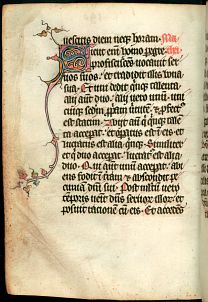 nescitis diem neq; horam. Ma
Sicut eni homo pegre
proficiscens vocavit ser
vos suos. et tradidit illis bona
sua. Et uni dedit quiq; talenta
alii aut duo. Alii vero unum. uni
cuiq; scdm propriam
est statim. Abiit aut qui quiq; tale
ta acceperat. et opatus est i eis. et
lucratus est alia quiq;. Similiter
et q duo acceperat. lucrat est alia
duo. Qui aut unum accepat. abi
ens fodit i terra. et abscondit pe
cunia dni sui. Post multu vero
temporis venit dns servor illor. et
posuit ratione cu eis. Et accedes